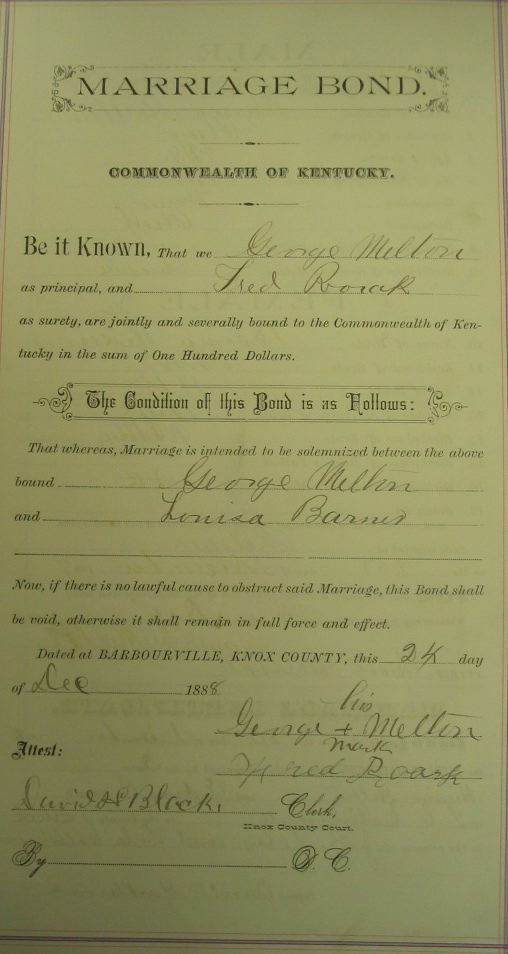 MARRIAGE BOND.
COMMONWEALTH OF KENTUCKY.
Be it Known, That we George Melton
as principal, and Fred Roark
as surety, are jointly and severally bound to the Commonwealth of Ken-
tucky in the sum of One Hundred Dollars.
The Condition of this Bond is as Follows:
That whereas, Marriage is intended to be solemnized between the above
bound George Melton
and Louisa Barnes
Now, if there is no lawful cause to obstruct said Marriage, this Bond shall
be void, otherwise it shall remain in full force and effect.
Dated at BARBOURVILLE, KNOX COUNTY, this 24 day
of Dec 1888
his
George + Melton
mark
Attest:
Fred Roark
David Black, Clerk,
Knox County Court.
By D. C.